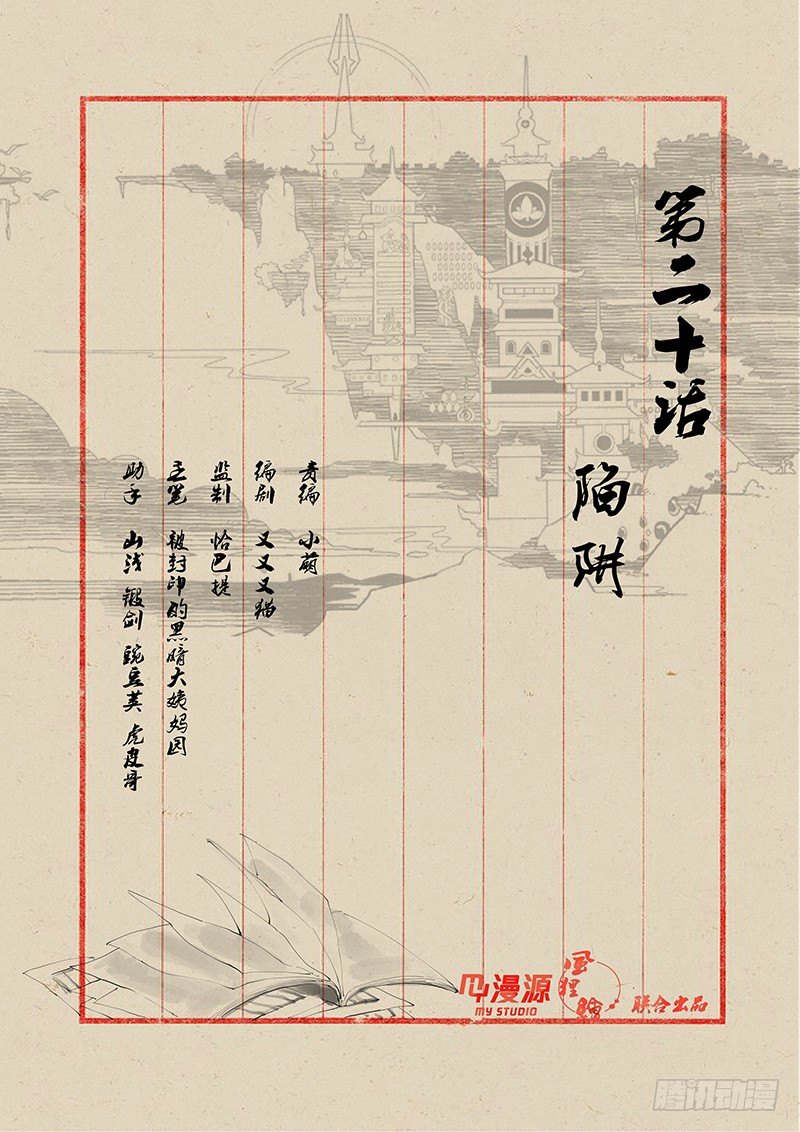 第二十话
陷阱
责编 小萌
编剧 又又又猫
监制 恰巴提
主笔 被封印的黑暗大姨妈园
助手 山浅 锻剑 豌豆荚 虎皮哥
漫源
MY STUDIO
联合出品
腾讯动漫